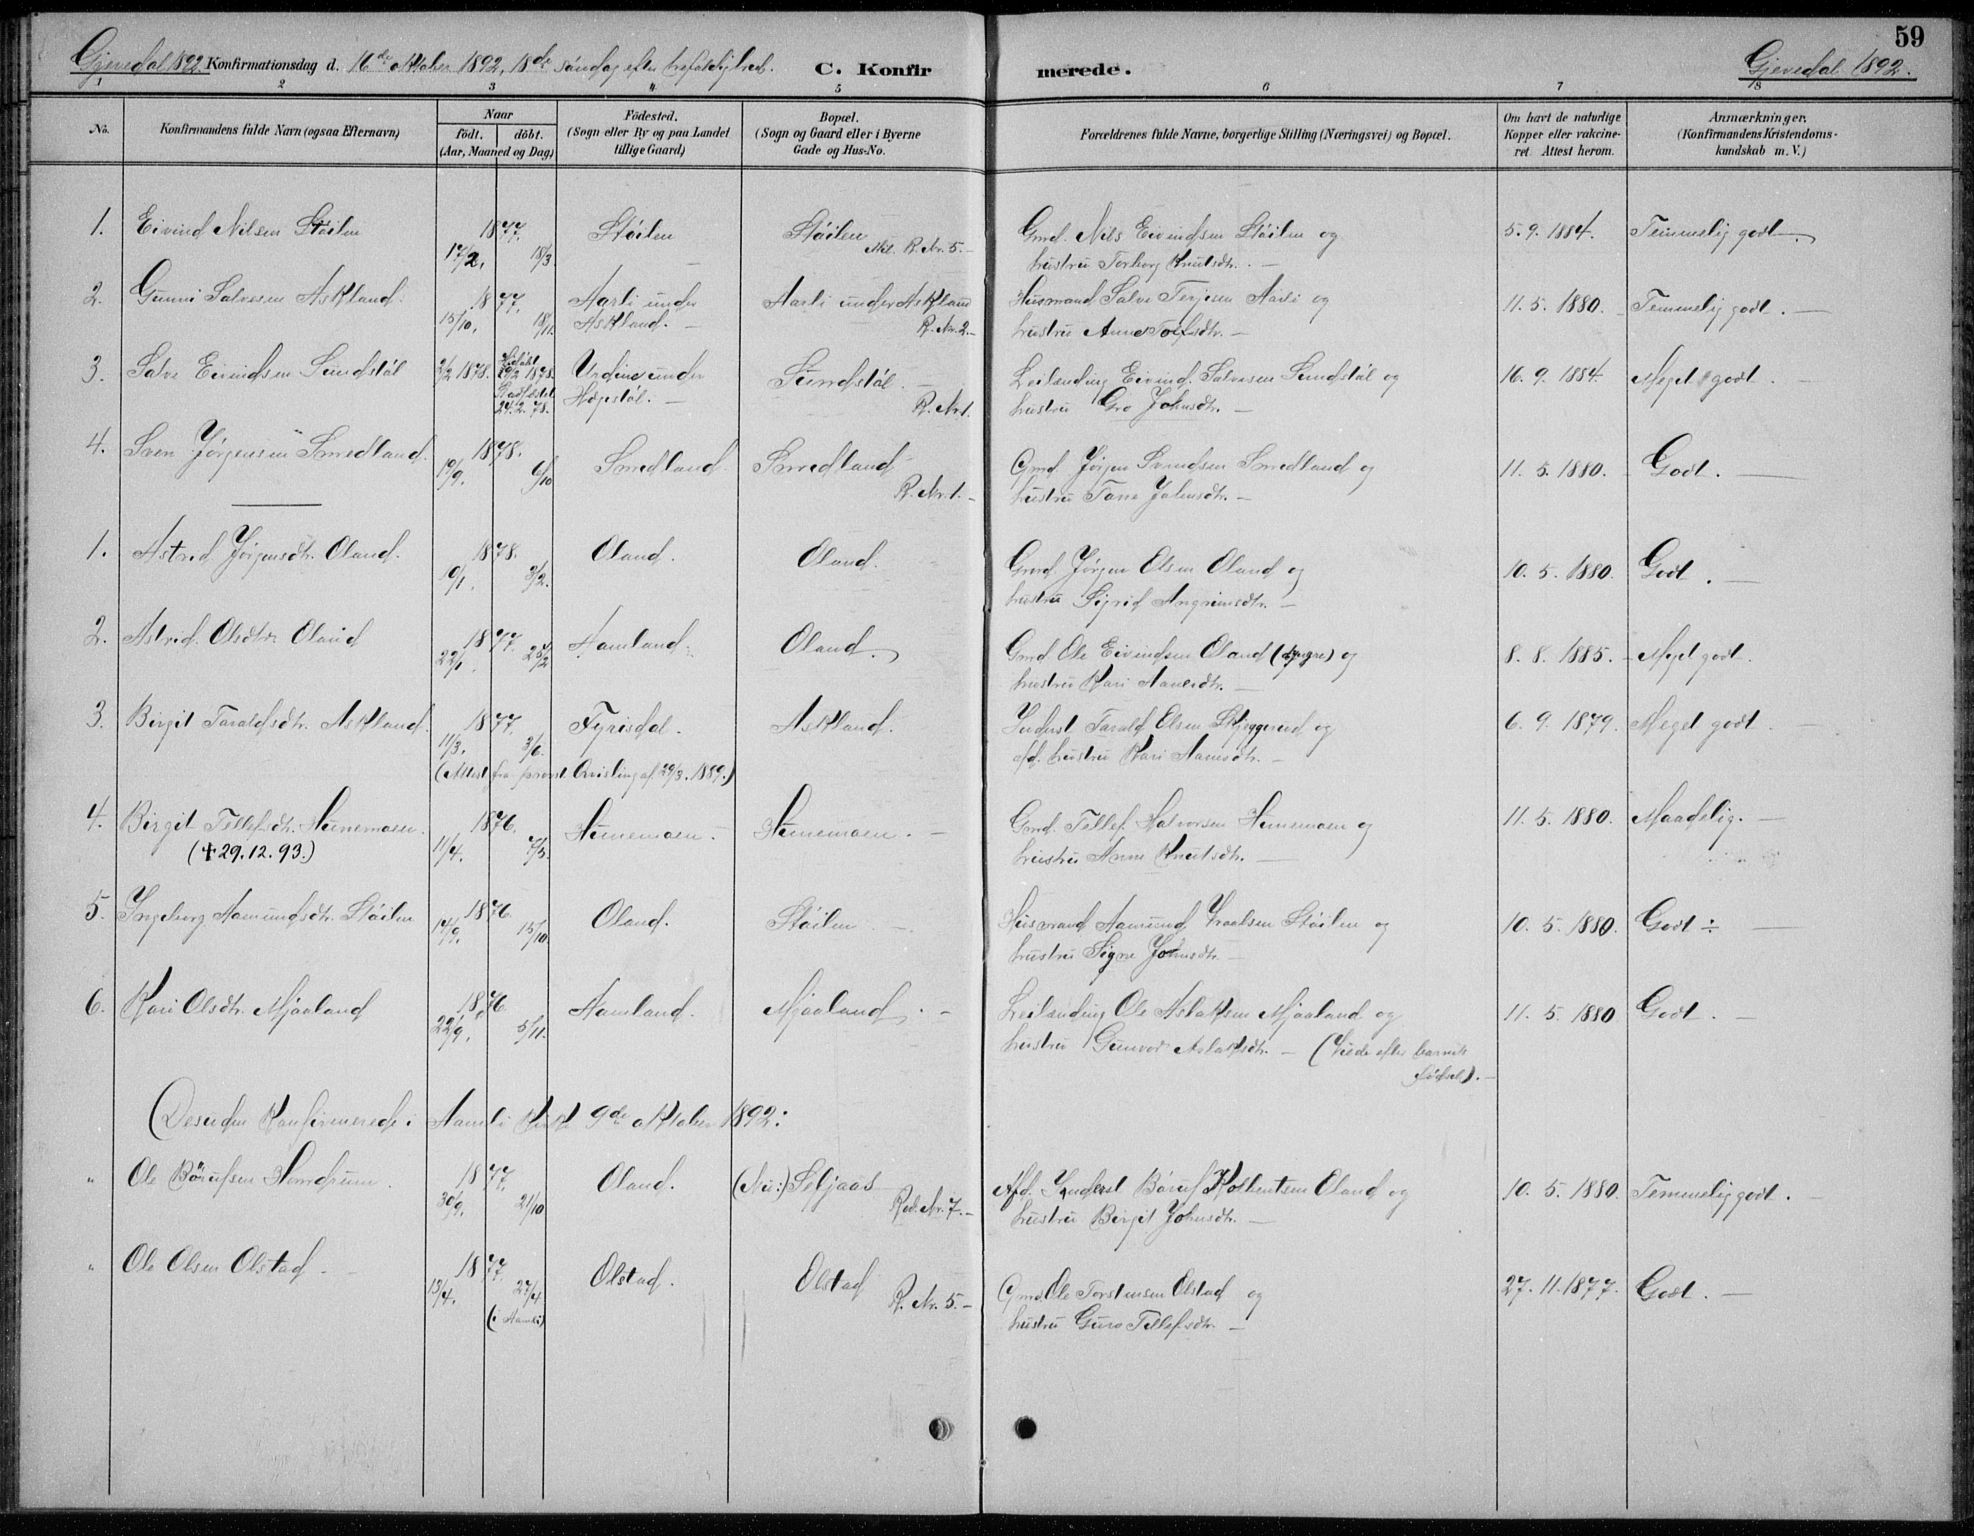 59
Gjevedal 1892 Konfirmationsdag d. 16de Oktober 1892, 18de søndag efter trefoldighed. C. Konfirmerede. Gjevedal 1892.
1 2 3 4 5 6 7 8
No. Konfirmandens fulde Navn (ogsaa Efternavn) Naar födt. döbt. (Aar, Maaned og Dag) Födested. (Sogn eller By og paa Landet tillige Gaard) Bopæl. (Sogn og Gaard eller i Byerne Gade og Hus-No.
Forældrenes fulde Navne, borgerlige Stilling (Næringsvei) og Bopæl. Om havt de naturlige Kopper eller vakcineret Attest herom. Anmærkninger. (Konfirmandens Kristendomskundskab m. V.)
1. Eivind Nilsen Støilen 1877. 17/2. 18/3 Støilen Støilen R. Nr. 5. Gmd. Nils Eivindsen Støilen og 5. 9. 1884. Temmelig godt.
hustru Torborg Knutsdtr.
2. Gunni Salvesen Askland. 1877. 15/10. 18/11. Aarli under Askland. Aarli under Askland R. Nr. 2. Husmand Salve Terjesen Aarli og 11. 5. 1880. Temmelig godt.
hustru Anne
3. Salve Eivindsen Sundstøl 2/2 1878. Hjdøbt 1878. Stadfæstet 24. 2. 78. Urdin under Hægestøl. Sundstøl. R. Nr 1. Leilænding Eivind Salvesen Sundstøl og 16. 9. 1884. Meget godt.
hustru Gro Johnsdtr.
4. Sven Jørgensen Smedland. 1878. 19/9. 6/10 Smedland. Smedland R. Nr. 1. Gmd. Jørgen Svendsen Smedland og 11. 5. 1880. Godt.
hustru Tone Johnsdtr.
1. Astrid Jørgensdtr. Oland. 1878. 10/1. 3/2. Oland. Oland. Gmd. Jørgen Olsen Oland og 10. 5. 1880. Godt.
hustru Sigrid Angrimsdtr.
2. Astrid Olsdtr. Oland 1877. 22/1. 25/2 Aamland. Oland. Gmd. Ole Eivindsen Oland (yngre) og 8. 8. 1885. Meget godt.
hustru Kari Aanesdtr.
3. Birgit Taraldsdtr. Askland. 1877. 11/3. 3/6. Fyrisdal. Askland. Inderst Tarald Olsen Skjeggerud og 6. 9. 1879. Meget godt.
(Attest fra provst Qvisling af 29/3. 1889.) afd. hustru Kari Aanesdtr.
4. Birgit Tellefsdtr. Hunemoen. 1876. 11/4. 7/5. Hunemoen. Hunemoen. Gmd. Tellef Halvorsen Hunemoen og 11. 5. 1880. Maadelig.
(†29.12.93.) hustru Anne Knutsdtr.
5. Ingeborg Aamundsdtr. Støilen 1876. 14/9. 15/10. Oland. Støilen Husmand Aamund Vraalsen Støilen og 10. 5. 1880. Godt ÷
hustru Signe Johnsdtr.
6. Kari Olsdtr. Mjaaland 1876. 22/9. 5/11. Aamland. Mjaaland. Leilænding Ole Aslaksen Mjaaland og 11. 5. 1880. Godt.
hustru Gunvor Aslaksdtr. (Viede efter barnets fødsel).
(Desuden Konfirmerede i Aamli Kirke 9de oktober 1892:
" Ole Børufsen Homdrum. 1877. 30/9. 21/10 Oland. (Nu:) Seljaas Rod. Nr. 7. Afd. Inderst Børuf Kolbentsen Oland og 10. 5. 1880. Temmelig godt.
hustru Birgit Johnsdtr.
" Ole Olsen Olstad. 1877. 13/4. 27/4 (i Aamli) Olstad. Olstad R. Nr. 5. Gmd. Ole Torstensen Olstad og 27. 11. 1877. Godt.
hustru Guro Tellefsdtr.